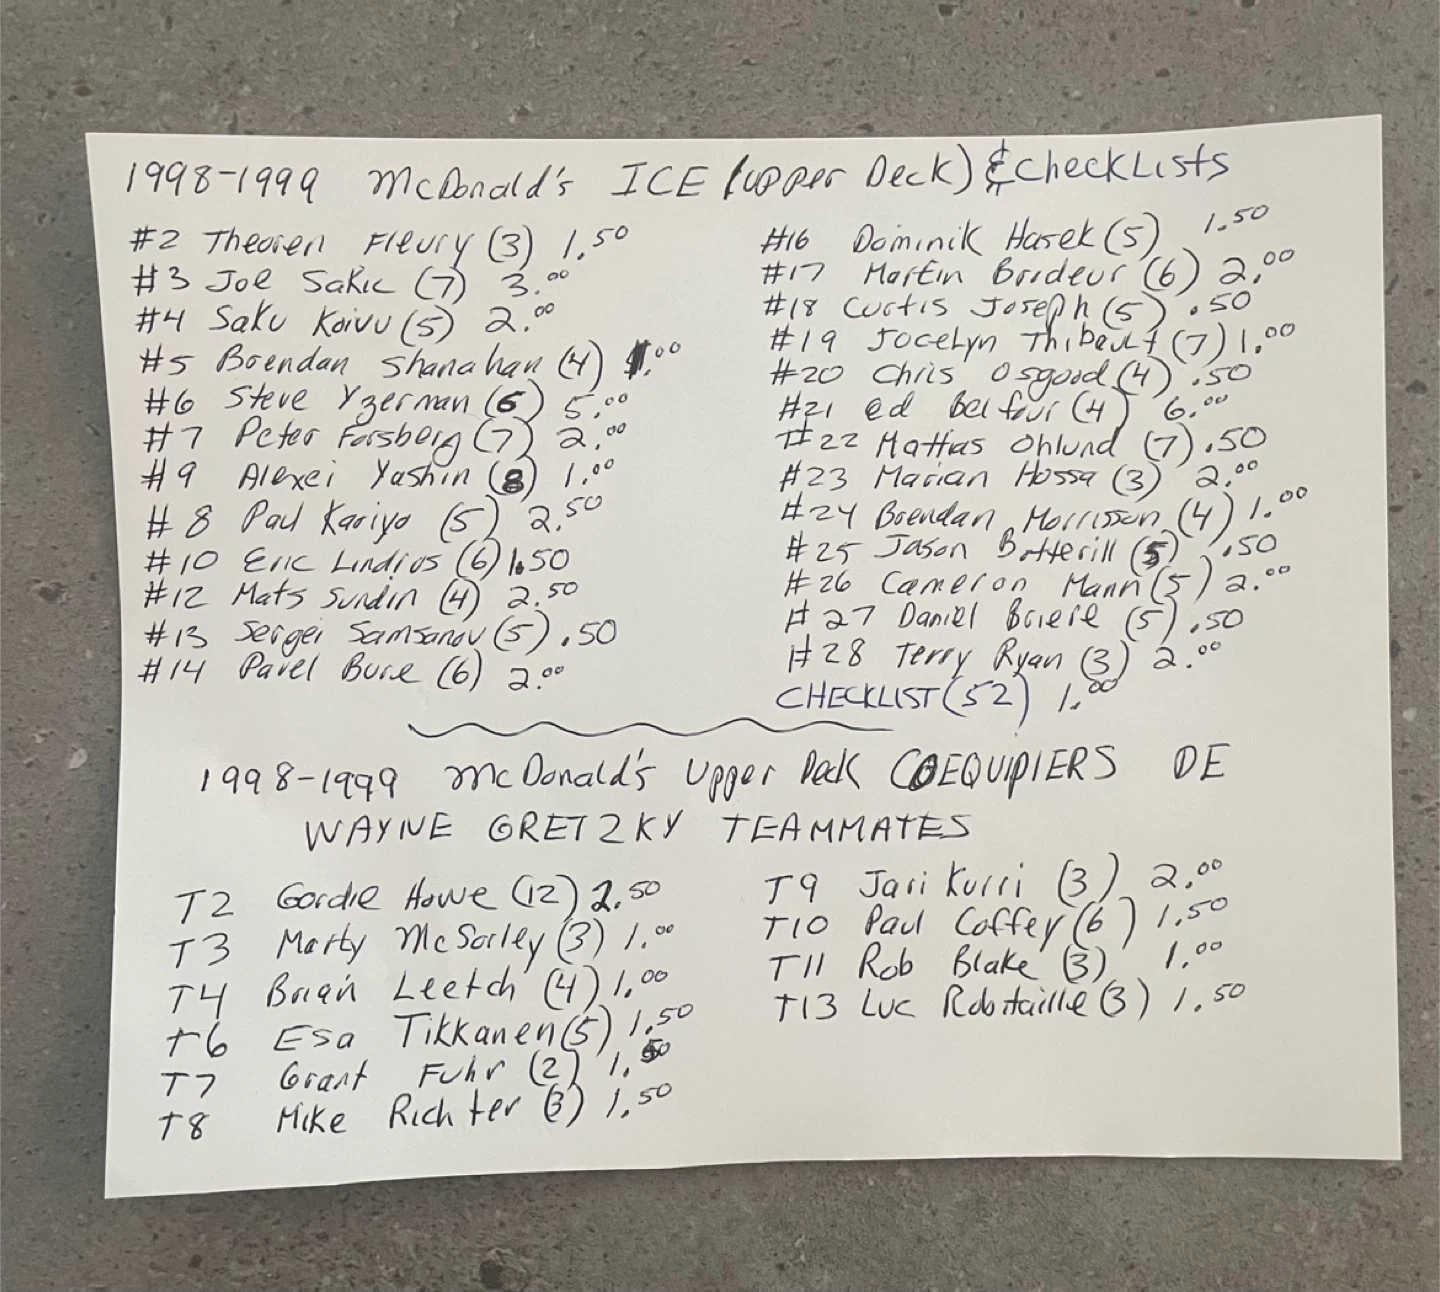 1998-1999 McDonald's ICE (upper Deck) & CheckLists
#2 Theoren Fleury (3) 1.50
#3 Joe Sakic (7) 3.00
#4 Saku Koivu (5) 2.00
#5 Brendan Shanahan (4) 1.00
#6 Steve Yzerman (6) 5.00
#7 Peter Forsberg (7) 2.00
#9 Alexei Yashin (8) 1.00
#8 Paul Kariya (5) 2.50
#10 Eric Lindros (6) 1.50
#12 Mats Sundin (4) 2.50
#13 Sergei Samsonov (5) .50
#14 Pavel Bure (6) 2.00
#16 Dominik Hasek (5) 1.50
#17 Martin Brodeur (6) 2.00
#18 Curtis Joseph (5) .50
#19 Jocelyn Thibault (7) 1.00
#20 Chris Osgood (4) .50
#21 Ed Belfour (4) 6.00
#22 Mattias Ohlund (7) .50
#23 Marian Hossa (3) 2.00
#24 Brendan Morrisson (4) 1.00
#25 Jason Botterill (5) .50
#26 Cameron Mann (5) 2.00
#27 Daniel Briere (5) .50
#28 Terry Ryan (3) 2.00
CHECKLIST (52) 1.00
1998-1999 McDonald's Upper Deck COEQUIPIERS DE
WAYNE GRETZKY TEAMMATES
T2 Gordie Howe (12) 2.50
T3 Marty McSorley (3) 1.00
T4 Brian Leetch (4) 1.00
T6 Esa Tikkanen (5) 1.50
T7 Grant Fuhr (2) 1.50
T8 Mike Richter (3) 1.50
T9 Jari Kurri (3) 2.00
T10 Paul Coffey (6) 1.50
T11 Rob Blake (3) 1.00
T13 Luc Robitaille (3) 1.50